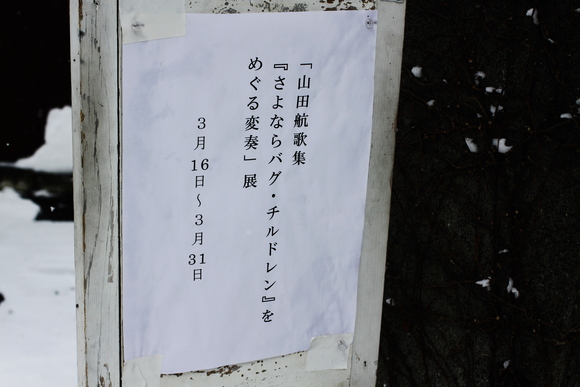 「山田航歌集
『さよならバグ・チルドレン』を
めぐる変奏」展
3月16日～3月31日